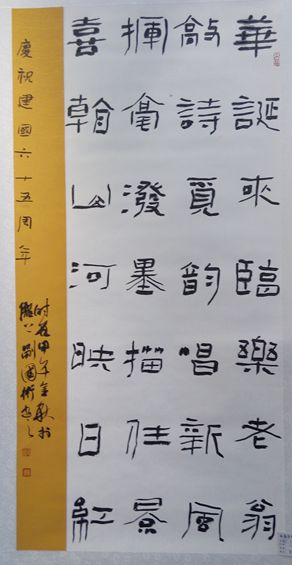 華誕來臨樂老翁
敲詩覓韵唱新風
揮毫潑墨描佳景
喜翰山河映日紅
慶祝建國六十五周年
时在甲午金秋於
劉國術